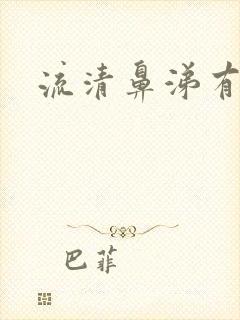 流清鼻涕有
巴菲